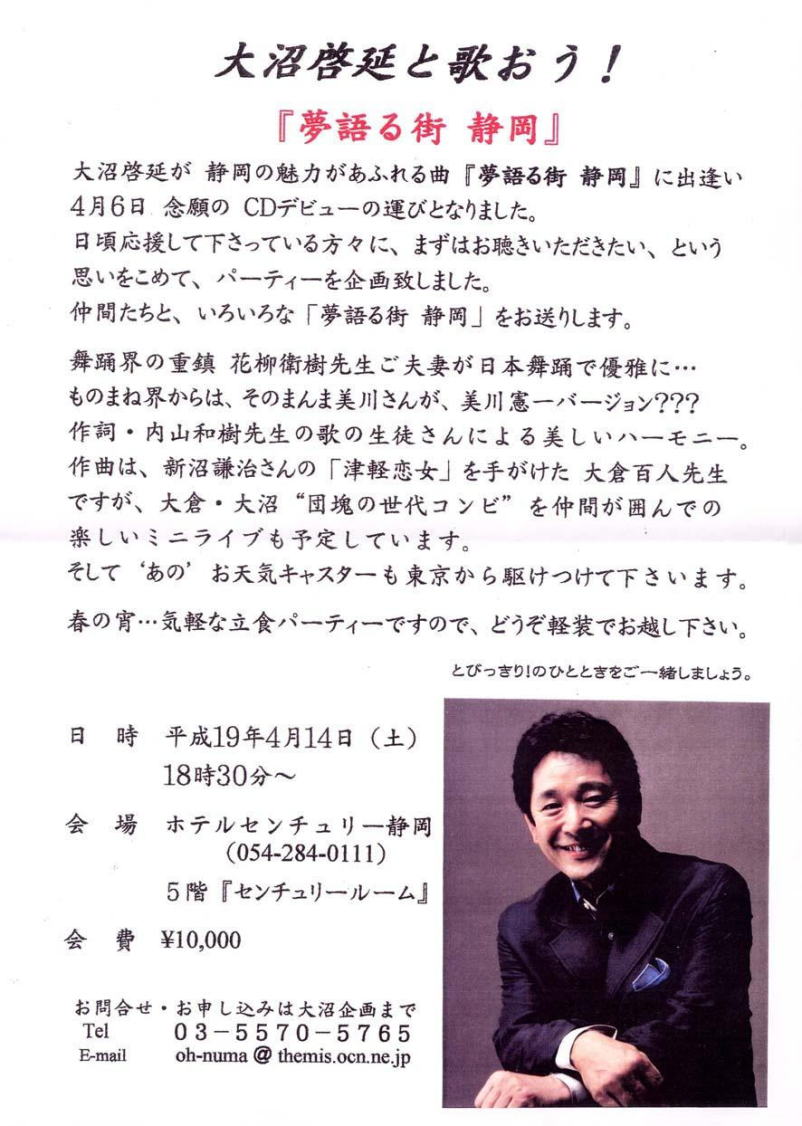 大沼啓延と歌おう！
『夢語る街 静岡』
大沼啓延が 静岡の魅力があふれる曲『夢語る街 静岡』に出逢い
4月6日 念願の CDデビューの運びとなりました。
日頃応援して下さっている方々に、まずはお聴きいただきたい、という
思いをこめて、パーティーを企画致しました。
仲間たちと、いろいろな「夢語る街 静岡」をお送りします。
舞踊界の重鎮 花柳衛樹先生ご夫妻が日本舞踊で優雅に…
ものまね界からは、そのまんま美川さんが、美川憲一バージョン???
作詞・内山和樹先生の歌の生徒さんによる美しいハーモニー。
作曲は、新沼謙治さんの「津軽恋女」を手がけた 大倉百人先生
ですが、大倉・大沼 “団塊の世代コンビ” を仲間が囲んでの
楽しいミニライブも予定しています。
そして ‘あの’ お天気キャスターも東京から駆けつけて下さいます。
春の宵…気軽な立食パーティーですので、どうぞ軽装でお越し下さい。
とびっきり!のひとときをご一緒しましょう。
日 時 平成19年4月14日（土）
18時30分～
会 場 ホテルセンチュリー静岡
（054-284-0111）
5階『センチュリールーム』
会 費 ¥10,000
お問合せ・お申し込みは大沼企画まで
Tel 03－5570－5765
E-mail oh-numa＠themis.ocn.ne.jp